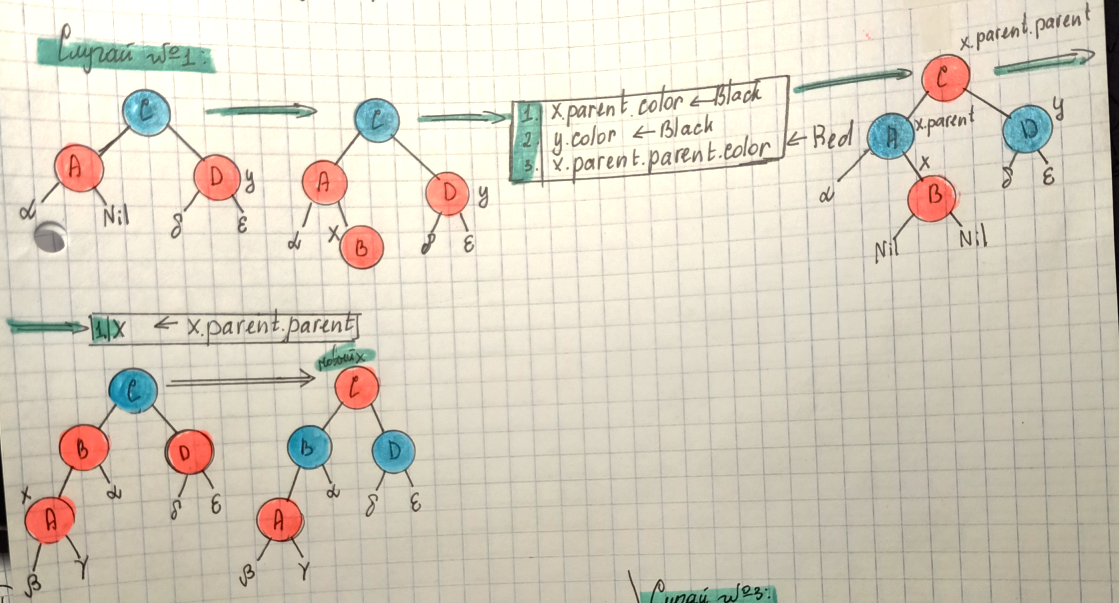 Случай №1:
C
A
D
y
α
Nil
δ
ε
C
A
D
y
α
x
B
δ
ε
1. x.parent.color ← Black
2. y.color ← Black
3. x.parent.parent.color ← Red
x.parent.parent
C
A
x.parent
D
y
α
x
B
δ
ε
Nil
Nil
1. x ← x.parent.parent
C
B
D
x
A
α
δ
ε
β
γ
новый x
C
B
D
A
α
δ
ε
β
γ
Случай №3: